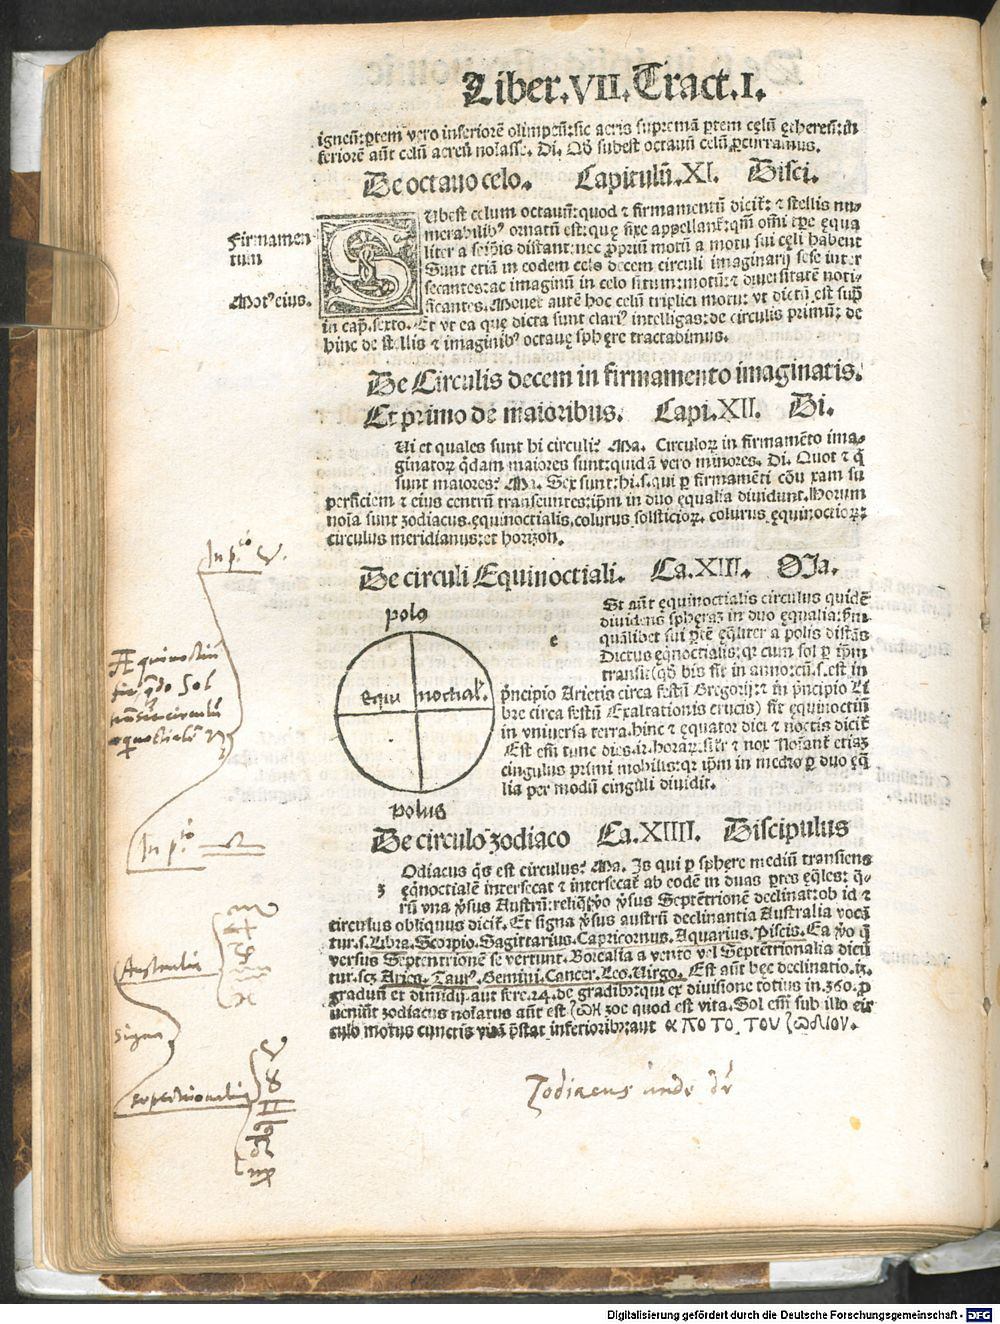 Liber.VII.Tract.I.
igneū: ꝑtem vero inferiorē olimpeū: sic aeris supremā ꝑtem cęlū ęthereū: in
feriorē aūt celū aereū noīasse. Di. Qđ subest octauū celū ꝑcurramus.
De octauo celo. Capitulū.XI. Disci.
Firmamen
tum
Motꝰ eius.
Ubest celum octauū: quod ⁊ firmamentū dicit̄: ⁊ stellis nu-
merabilibꝰ ornatū est: quę fixe appellant̄: qm̄ omī tꝑe ęqua
liter a seipīs distant: nec ꝓpriū motū a motu sui cęli habent
Sunt etiā in eodem celo decem circuli imaginarij sese inter
secantes: ac imaginū in celo situm: motū: ⁊ diuersitatē noti-
ficantes. Mouet̄ autē hoc celū triplici motu: vt dictū est sup̄
in cap̄. sexto. Et vt ea quę dicta sunt clariꝰ intelligas: de circulis primū: de
hinc de stellis ⁊ imaginibꝰ octauę sphęre tractabimus.
De Circulis decem in firmamento imaginatis.
Et primo de maioribus. Capi.XII. Di.
Ui et quales sunt hi circuli? Ma. Circuloꝝ in firmamēto ima-
ginatoꝝ q̄dam maiores sunt: quidā vero minores. Di. Quot ⁊ q̄
sunt maiores? Ma. Sex sunt: hi. s. qui ꝑ firmamēti cōuexam su
perficiem ⁊ eius centrū transeuntes: ip̄m in duo ęqualia diuidunt. Horum
noīa sunt zodiacus. equinoctialis, colurus solsticioꝝ. colurus ęquinoctioꝝ:
circulus meridianus: et horizon.
In p̄cio ♈.
De circuli Equinoctiali. Ca.XIII. Ma.
polꝰ
equi noctial̓.
polus
e
St aūt ęquinoctialis circulus quidē
diuidens sphęrā in duo ęqualia: ẜm
quālibet sui ꝑtē ęq̄liter a polis distās
Dictus eq̄noctialis: qꝛ cum sol ꝑ ip̄m
transit (qđ bis fit in anno: cū. s. est in
pr̄incipio Arietis circa festū Gregorij: ⁊ in pr̄incipio Li
bre circa festū Exaltationis crucis) fit ęquinoctiū
in vniuersa terra. hinc ⁊ equator diei ⁊ noctis dicit̄
Est em̄ tunc dies. 12. horaꝝ. sil̓r ⁊ nox. Noīant̄ etiā
cingulus primi mobilis: qꝛ ip̄m in medio ꝑ duo ęq̄
lia per modū cinguli diuidit.
Aequinoctiū
fit q̄do Sol
circulū
In p̄cio ♎
De circulo zodiaco Ca.XIIII. Discipulus
z
Odiacus q̄s est circulus? Ma. Is qui ꝑ sphęre mediū transiens
ęq̄noctialē intersecat ⁊ intersecat̄ ab eodē in duas ꝑtes ęq̄les: q̄-
rū vna v̓sus Austrū: reliq̄ v̓o v̓sus Septētrionē declinat: ob id ⁊
circulus obliquus dicit̄. Et signa v̓sus austrū declinantia Australia vocā
tur. s. Libra. Scorpio. Sagittarius. Capricornus. Aquarius. Piscis. Ea v̓o q̄
versus Septentrionē se vertunt. Borealia a vento vel Septētrionalia dicū
tur. scꝫ Aries. Taurꝰ. Gemini. Cancer. Leo. Uirgo. Est aūt hęc declinatio. 23.
graduū et dimidij. aut fere. 24. de gradibꝰ: qui ex diuisione totius in. 360. ꝓ
ueniūt zodiacus noīatus aūt est ζωὴ zoe quod est vita. Sol em̄ sub illo eir
culo motus cunctis vitā pr̄stat inferioribꝰ: aut απο το. του ζωδιου.
♏
♐
♑
♒
♓
Australia
Signa
Septētrionalia
♈
♉
♊
♋
♌
♍
Zodiacus unde dr̄
Digitalisierung gefördert durch die Deutsche Forschungsgemeinschaft - DFG